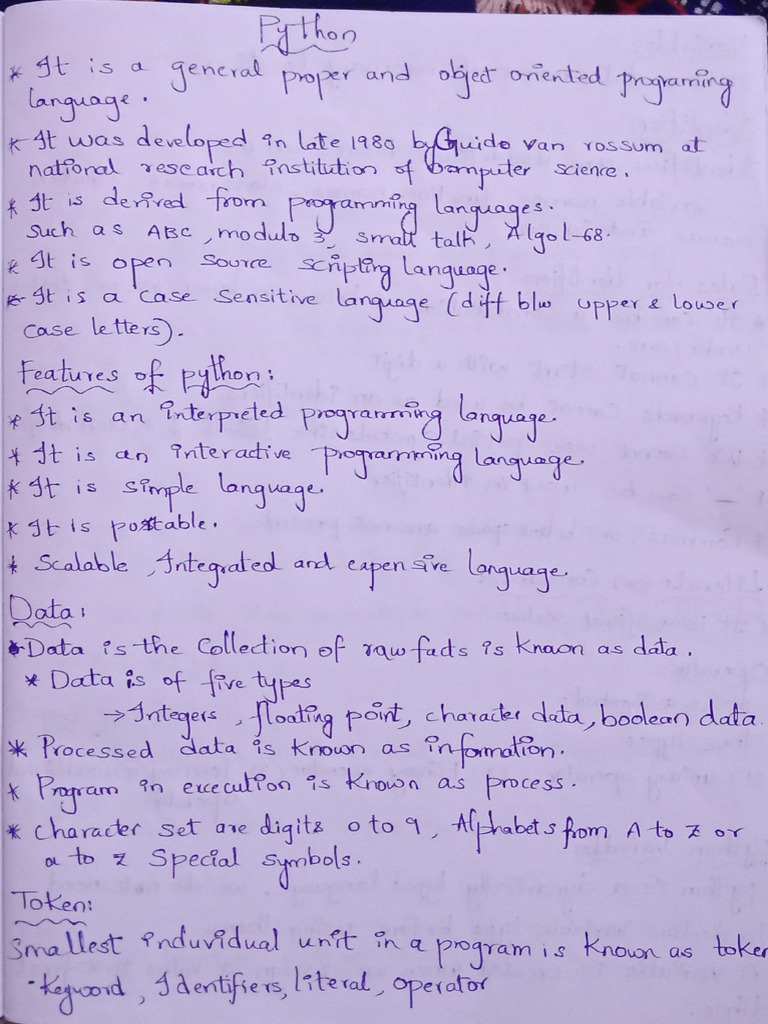 Python
* It is a general proper and object oriented programing
language.
* It was developed in late 1980 by Guido van rossum at
national research institution of computer science.
* It is derived from programming languages.
Such as ABC, modulo 3, small talk, Algol-68.
* It is open source scripting language.
* It is a case sensitive language (diff b/w upper & lower
case letters).
Features of python:
* It is an interpreted programming language.
* It is an interactive programming language.
* It is simple language.
* It is portable.
* Scalable, Integrated and expensive language.
Data:
* Data is the collection of raw facts is known as data.
* Data is of five types
→ Integers, floating point, character data, boolean data.
* Processed data is known as information.
* Program in execution is known as process.
* Character set are digits 0 to 9, Alphabets from A to Z or
a to z Special symbols.
Token:
Smallest induvidual unit in a program is known as token
• Keyword, Identifiers, literal, operator